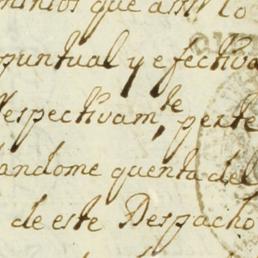 que assi lo
puntual y efectiva
respectivam,te perte
andome quenta del
de este Despacho